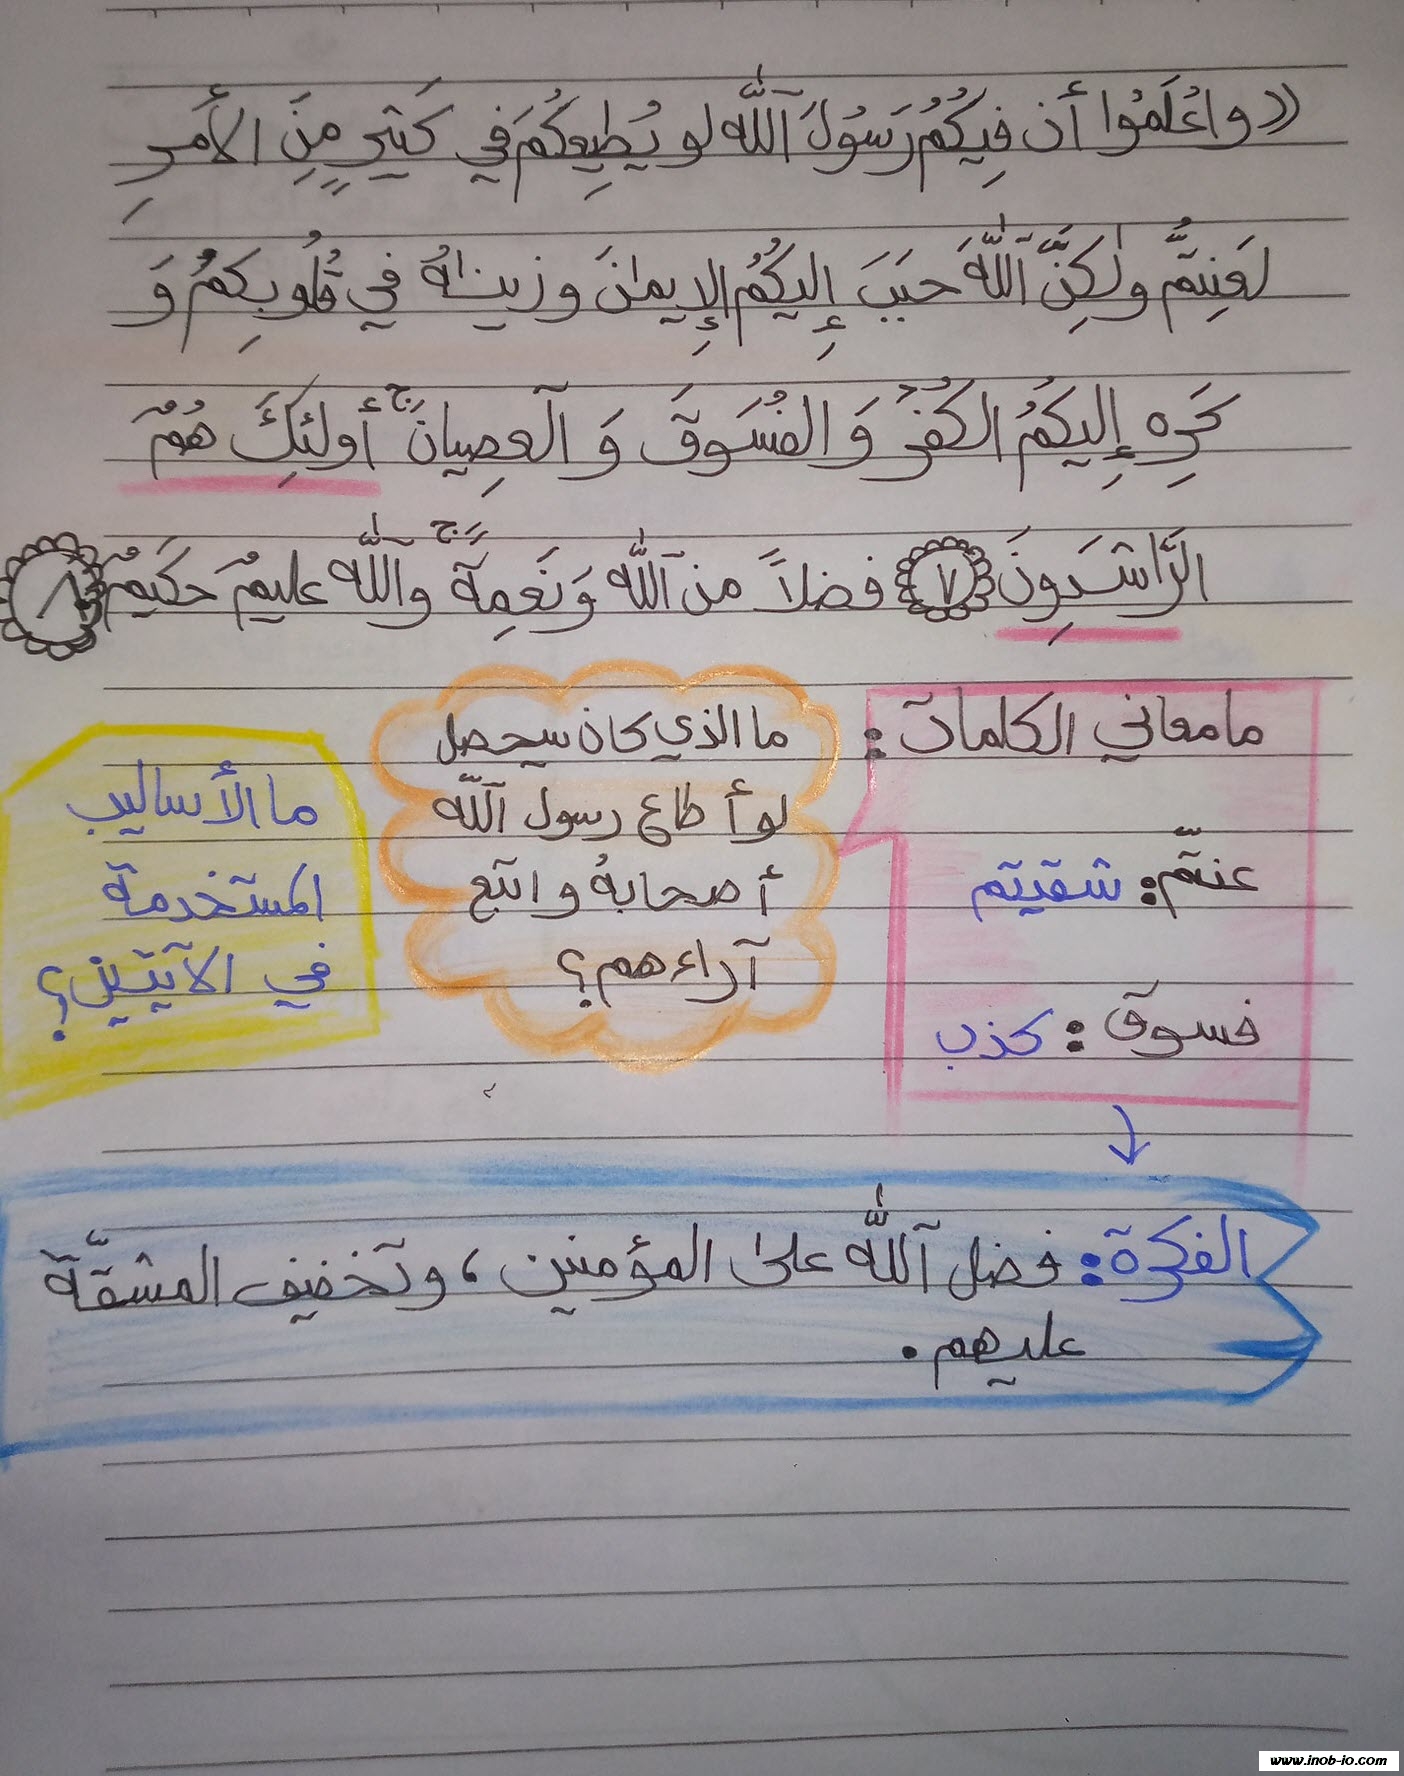 ((واعْلَمُوا أن فِيكُمْ رَسُولَ ٱللَّه لو يُطِيعِكُمَ في كَثِيرٍ مِنَ الأَمرِ
لَعَنِتمُّ ولٰكِنَّ ٱللَّهَ حبَبَ إِليكُمُ الإِيمٰنَ وزينٰهُ في قُلُوبِكِمُ وَ
كَرِه إِليكمُ الكُفرَ وَ الفُسَوقَ وَ ٱلعصِيانَ ۚ أولئِكَ هُمُ
الرَّاشَدِونَ ٧ فضلاً من ٱللَّه وَنَعمِةً ۚ وٱللَّه عليمٌ حكَيمٌ ٨
ما معاني الكلمات :
عنتمّ : شقيتم
فسوق : كذب
ما الذي كان سيحصل
لو أطاع رسول ٱللّه
أصحابهُ واتبع
آراءهم؟
ما الأساليب
المستخدمة
في الآيتين؟
الفكرة : فضل ٱللَّه علىٰ المؤمنين ، وتخفيف المشقّة
عليهم .
www.inob-io.com